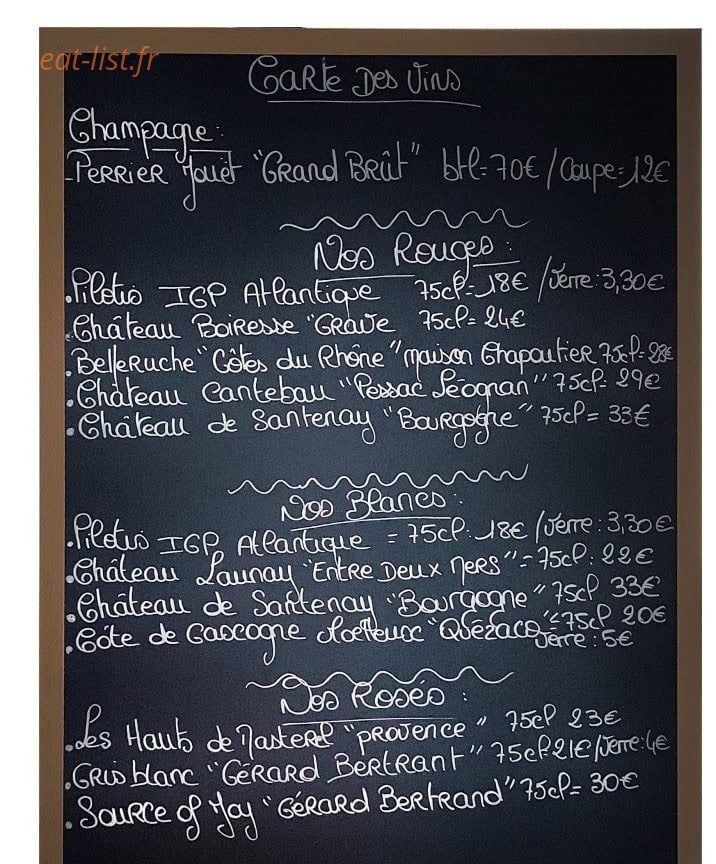 eat-list.fr
Carte Des Vins
Champagne:
-Perrier Jouët "Grand Brût" btl=70€ / Coupe=12€
Nos Rouges:
.Pilotis IGP Atlantique 75cl=18€ / Verre: 3,30€
.Château Boiresse "Grave 75cl= 24€
.Belleruche "Côtes du Rhône" maison Chapoutier 75cl=28€
.Château Cantebau "Pessac Léognan" 75cl= 29€
.Château de Santenay "Bourgogne" 75cl= 33€
Nos Blancs:
.Pilotis IGP Atlantique = 75cl: 18€ / Verre: 3,30€
.Château Launay "Entre Deux Mers" = 75cl: 22€
.Château de Santenay "Bourgogne" 75cl 33€
.Côte de Gascogne Moelleux "Quézaco"=75cl 20€
Verre: 5€
Nos Rosés:
.Les Hauts de Masterel "Provence" 75cl 23€
.Gris blanc "Gérard Bertrant" 75cl 21€/Verre: 4€
.Source of Joy "Gérard Bertrand" 75cl= 30€